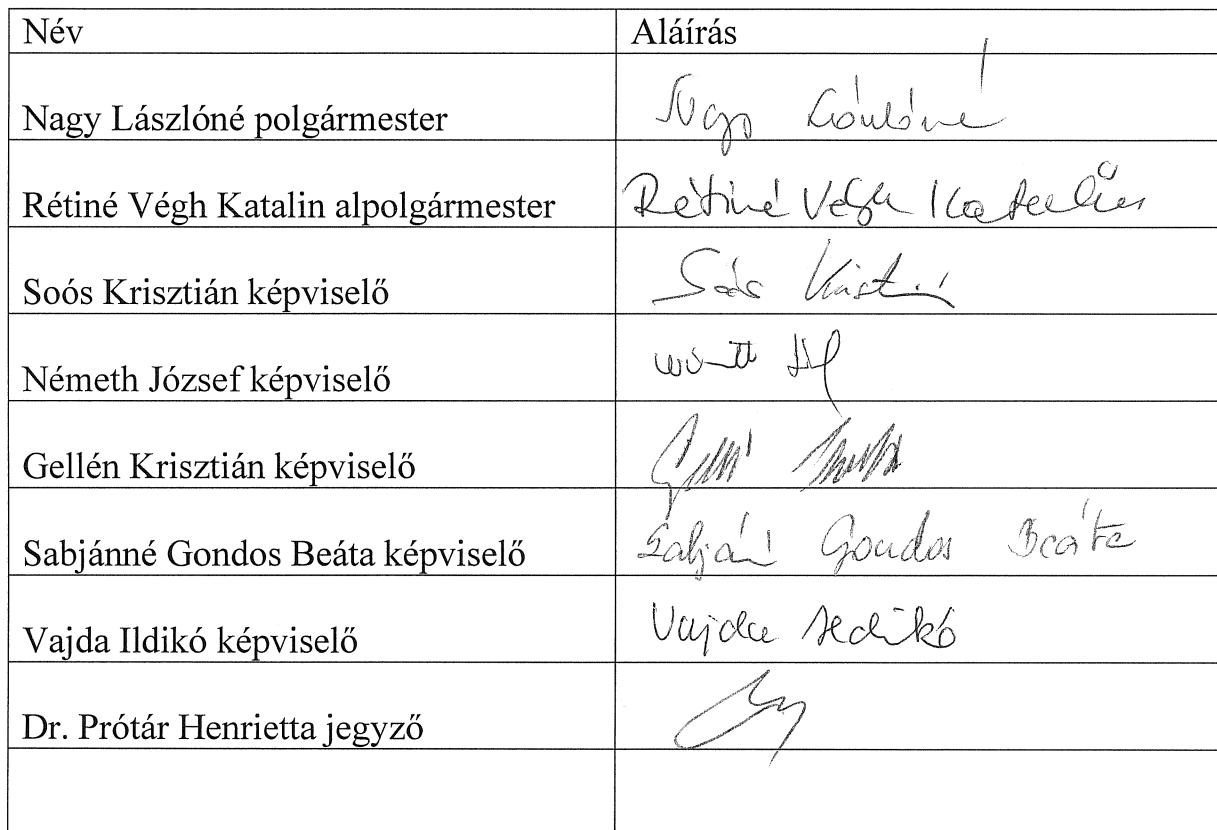 Név Aláírás
Nagy Lászlóné polgármester Nagy Lászlóné
Rétiné Végh Katalin alpolgármester Rétiné Végh Katalin
Soós Krisztián képviselő Soós Kriszti
Németh József képviselő
Gellén Krisztián képviselő
Sabjánné Gondos Beáta képviselő Sabjánné Gondos Beáta
Vajda Ildikó képviselő Vajda Ildikó
Dr. Prótár Henrietta jegyző